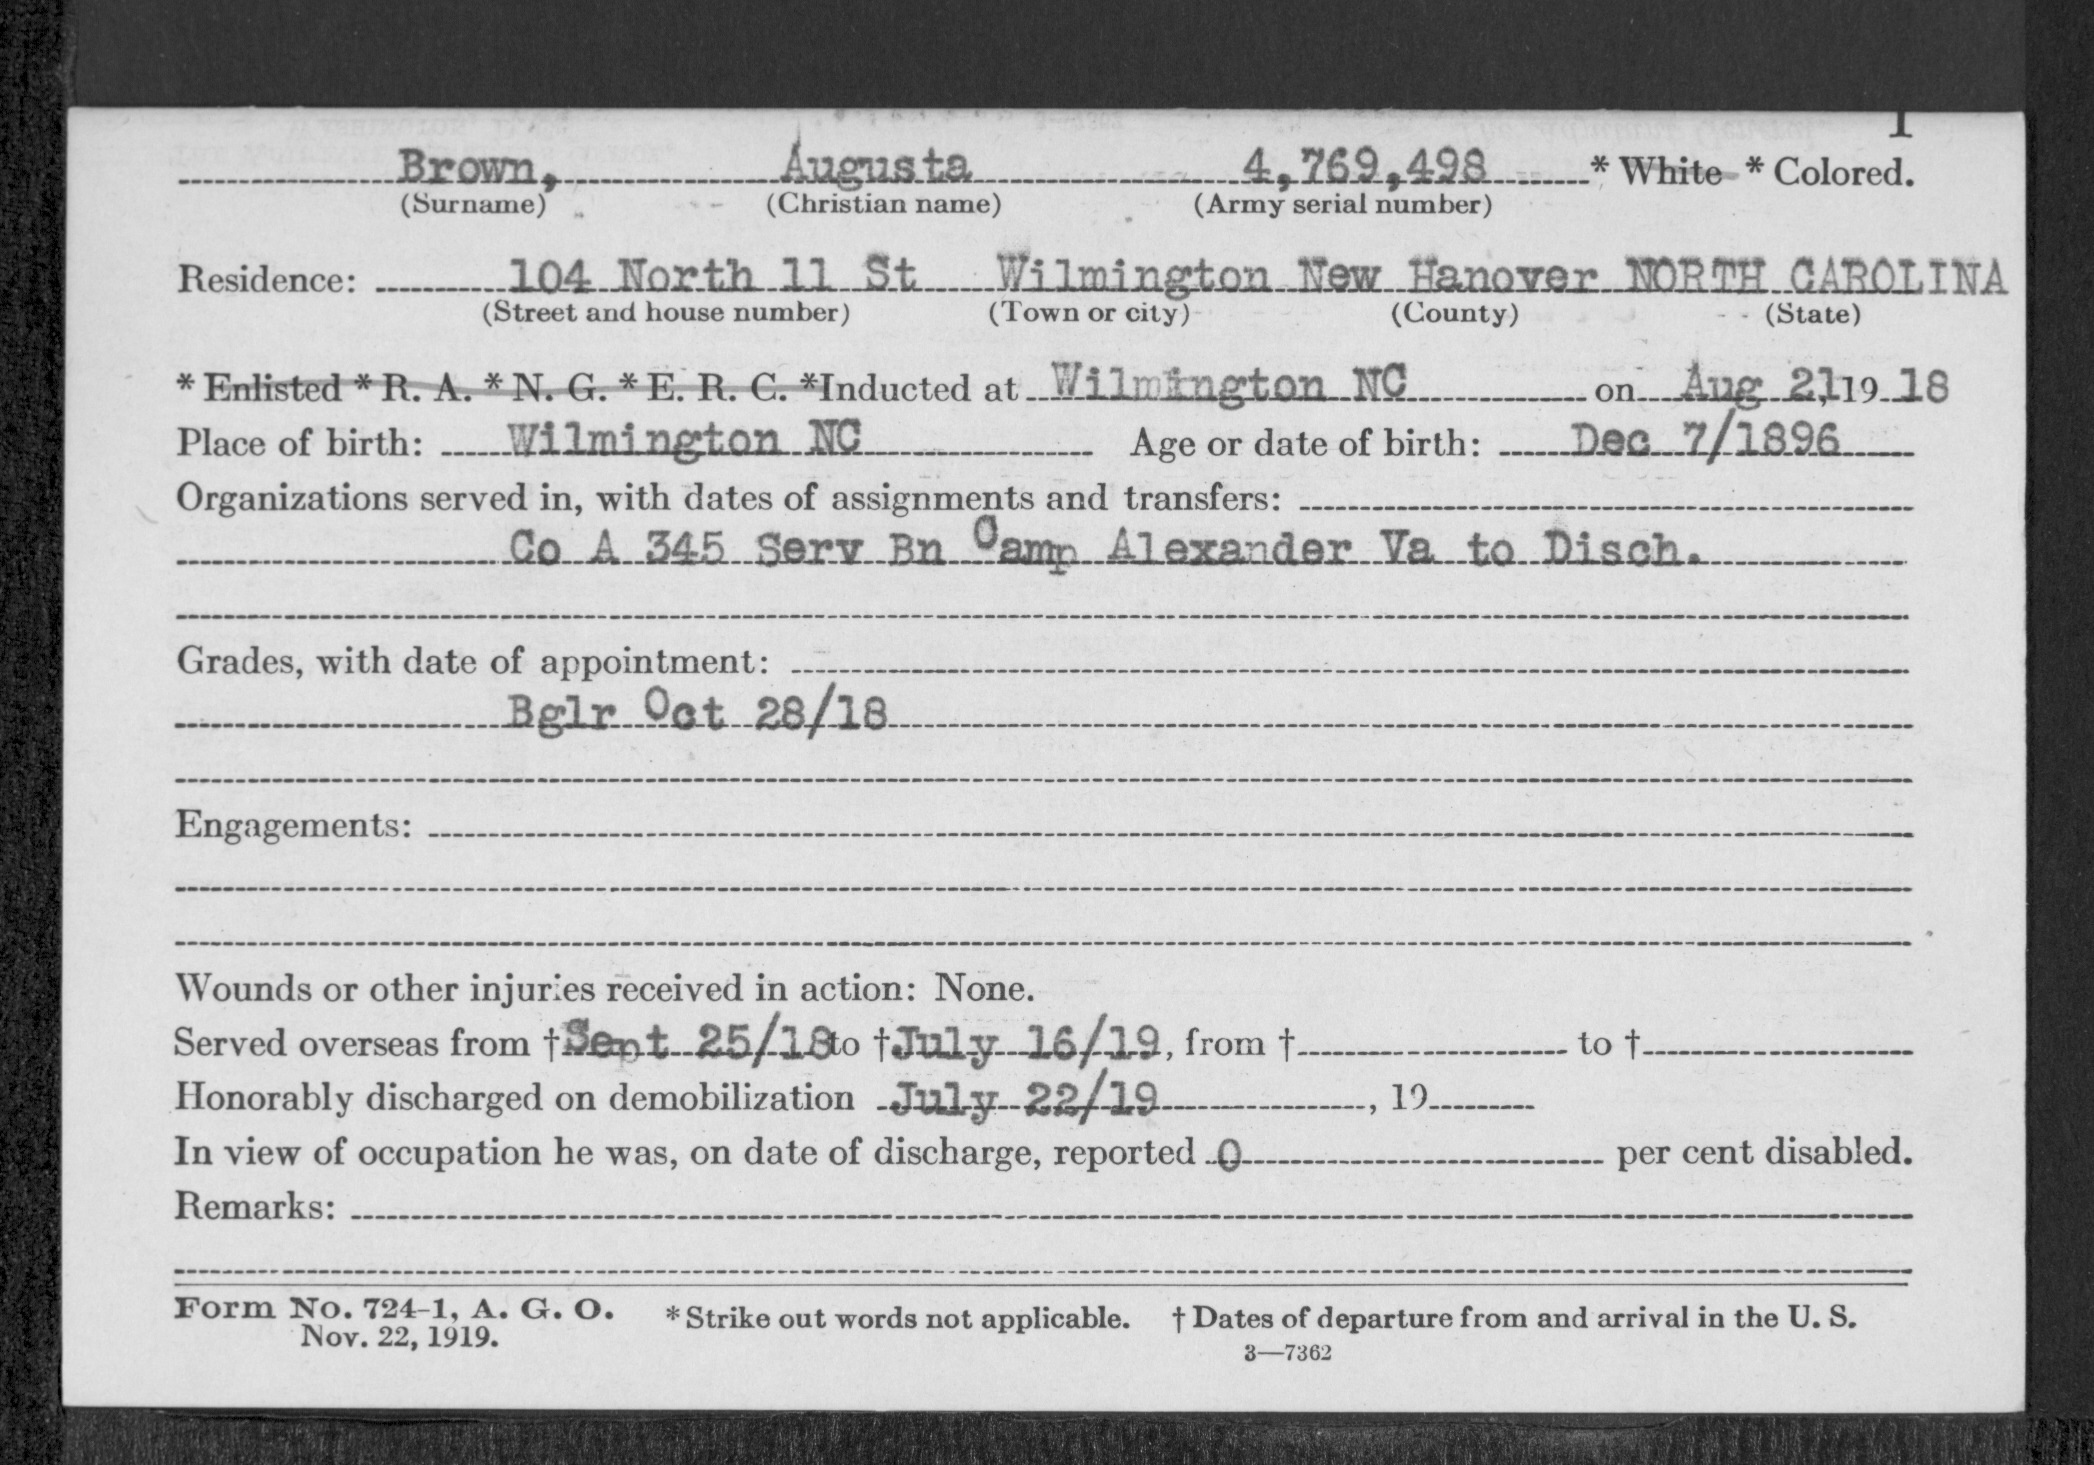 1
Brown, Augusta 4,769,498 * White * Colored.
(Surname) (Christian name) (Army serial number)
Residence: 104 North 11 St Wilmington New Hanover NORTH CAROLINA
(Street and house number) (Town or city) (County) (State)
* Enlisted * R. A. * N. G. * E. R. C. *Inducted at Wilmington NC on Aug 21, 19 18
Place of birth: Wilmington NC Age or date of birth: Dec 7/1896
Organizations served in, with dates of assignments and transfers:
Co A 345 Serv Bn Camp Alexander Va to Disch.
Grades, with date of appointment:
Bglr Oct 28/18
Engagements:
Wounds or other injuries received in action: None.
Served overseas from †Sept 25/18 to †July 16/19, from † to †
Honorably discharged on demobilization July 22/19, 19
In view of occupation he was, on date of discharge, reported 0 per cent disabled.
Remarks:
Form No. 724-1, A. G. O. * Strike out words not applicable. † Dates of departure from and arrival in the U. S.
Nov. 22, 1919.
3—7362